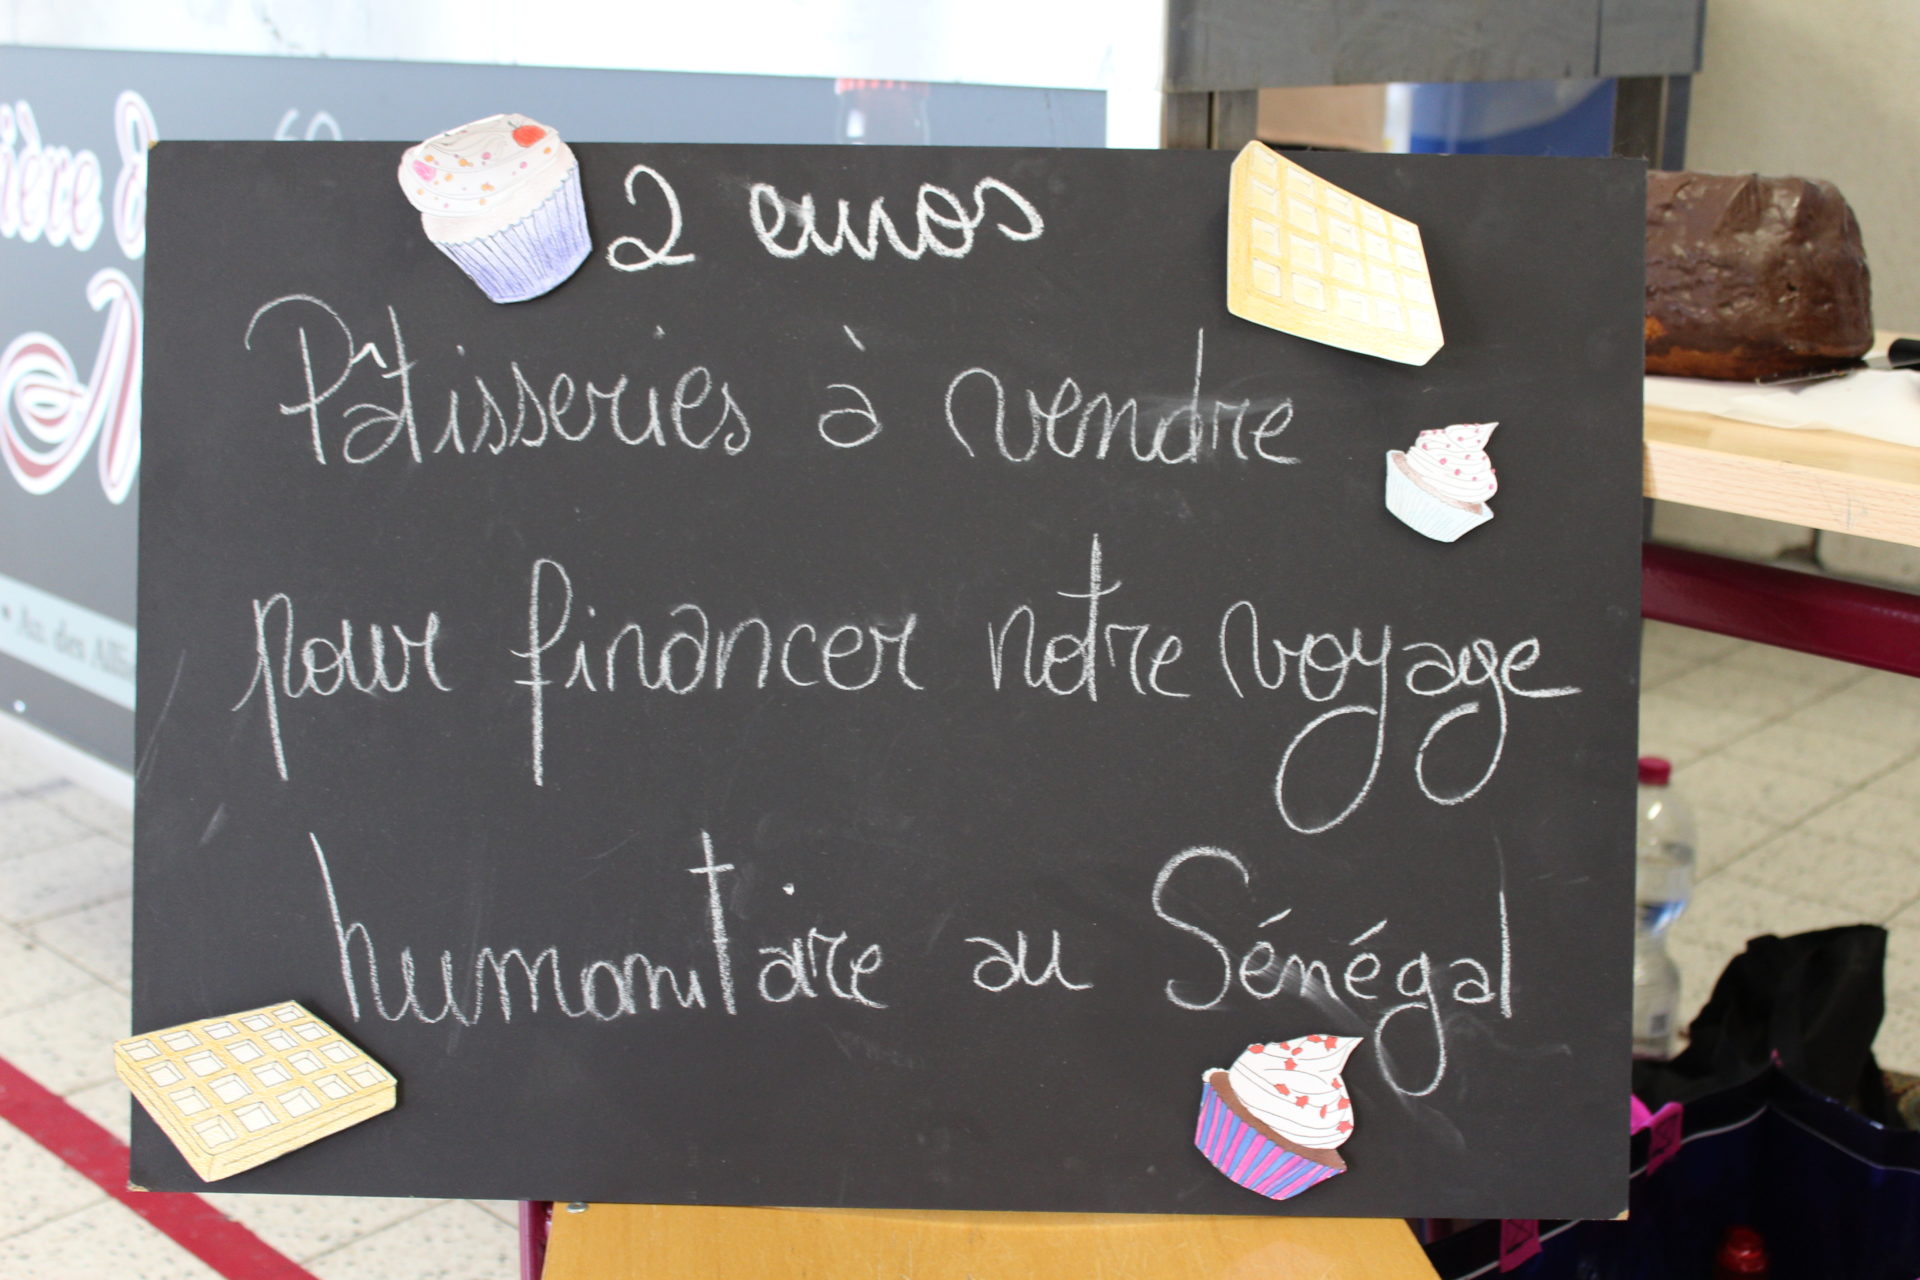 2 euros
Pâtisseries à vendre
pour financer notre voyage
humanitaire au Sénégal
ière &
• Av. des Allié